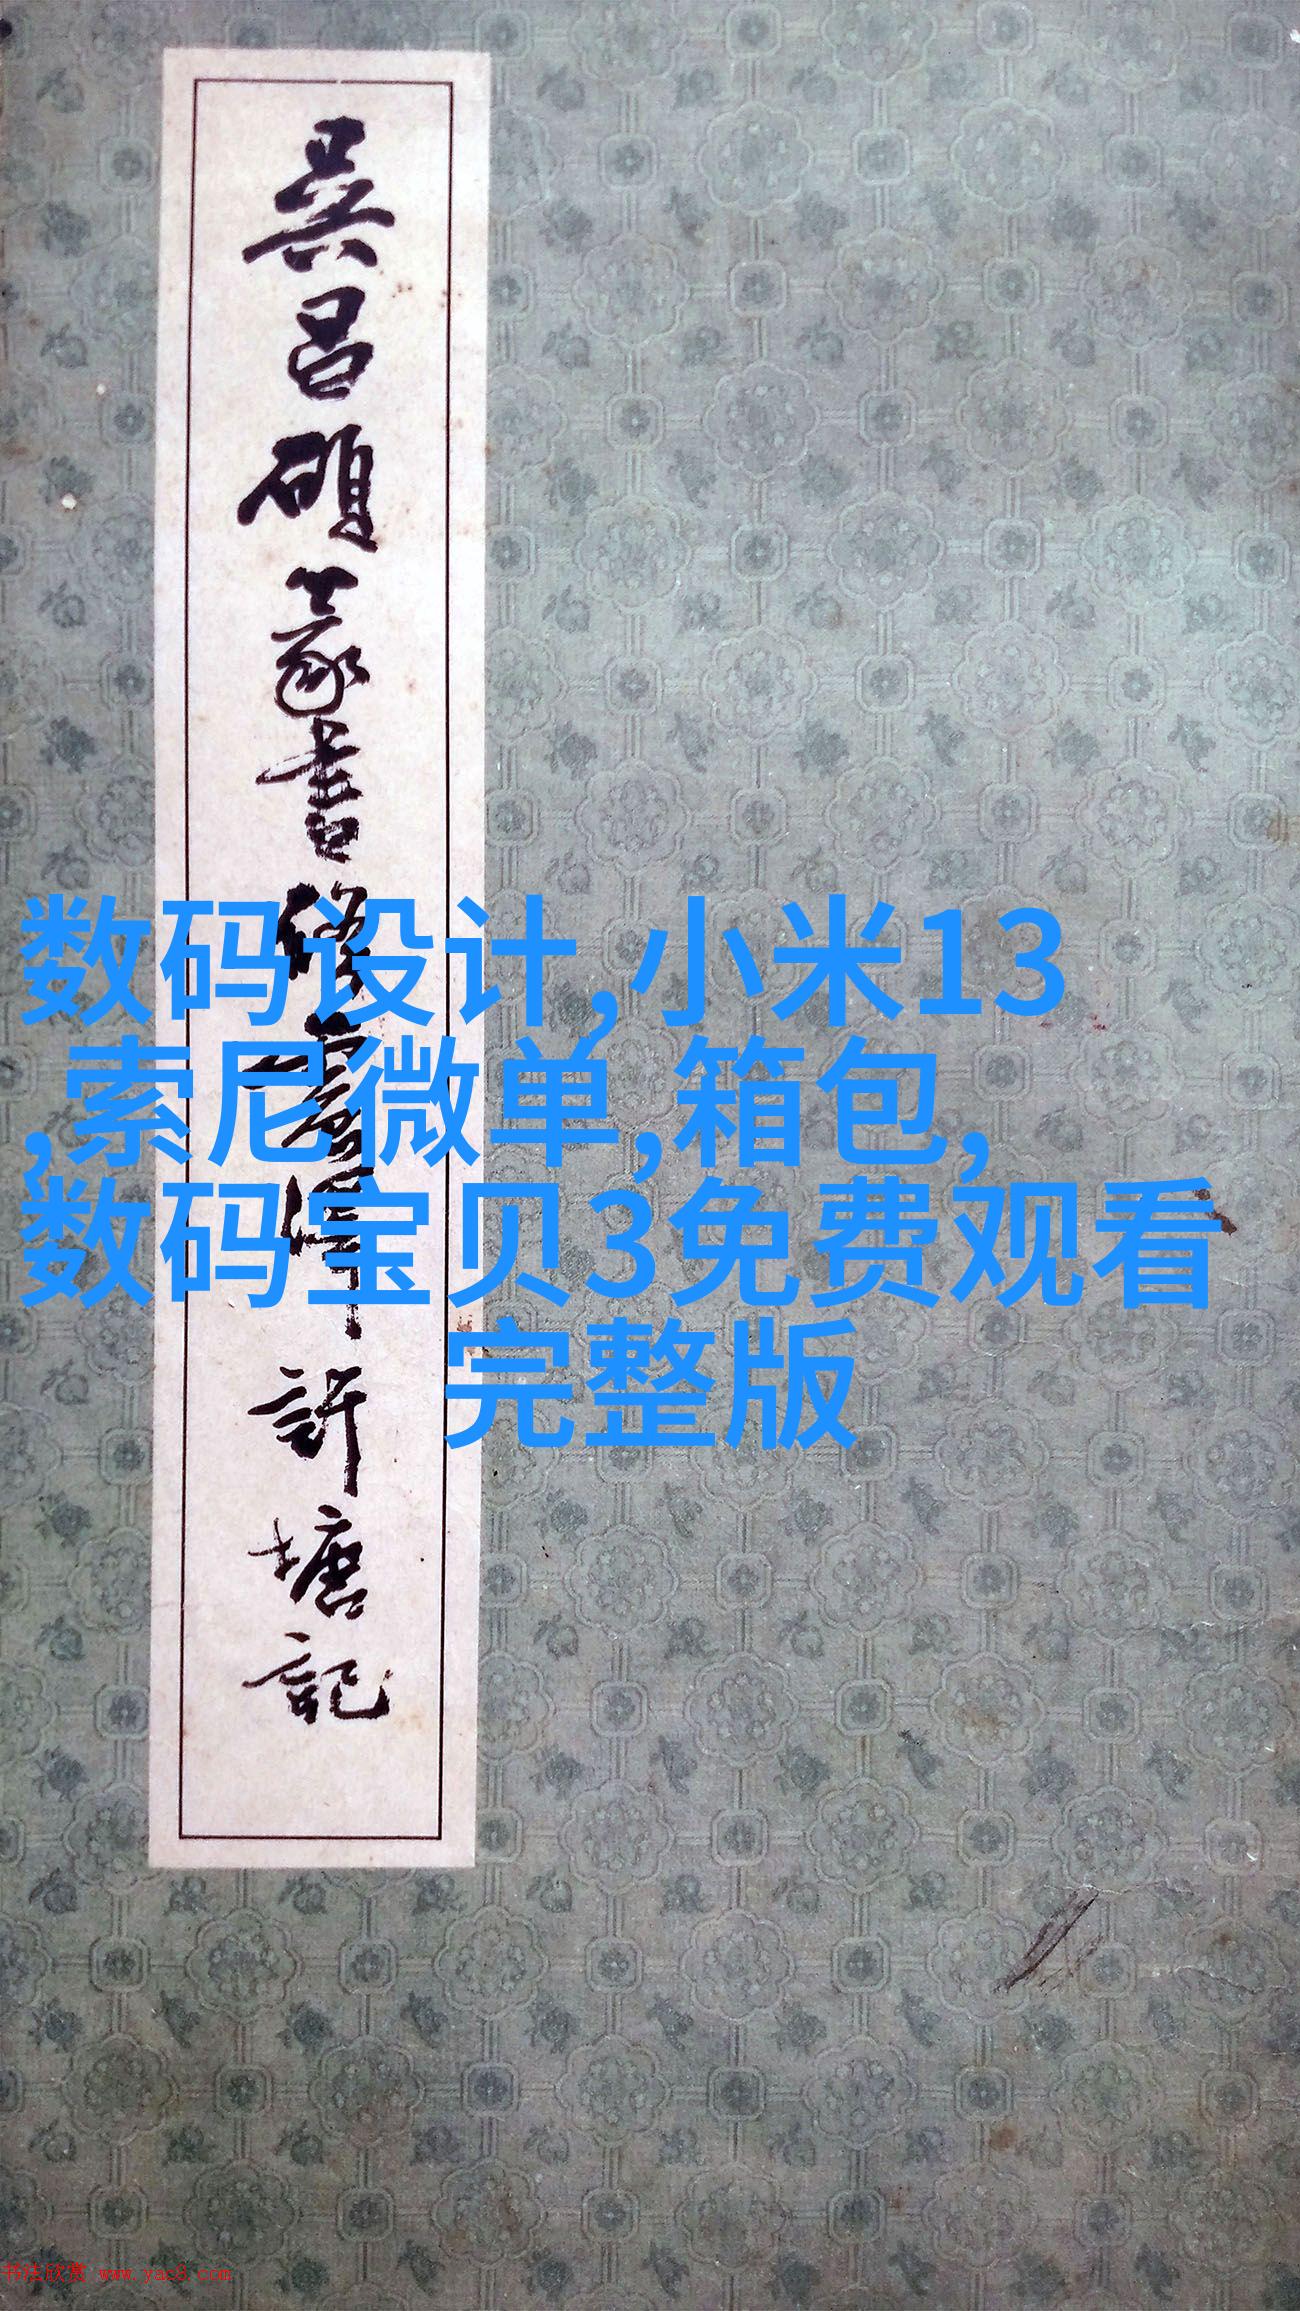 吴昌碩篆書修震澤許塘記
数码设计,小米13
,索尼微单,箱包,
数码宝贝3免费观看
完整版
书法欣赏 www.yac8.com